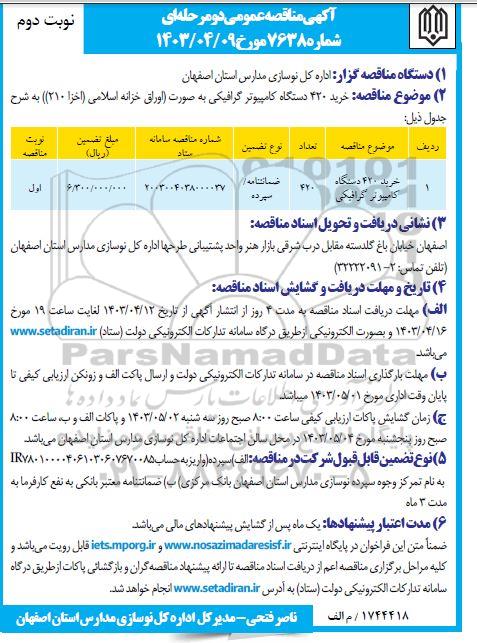 آگهی مناقصه عمومی دو مرحله‌ای
نوبت دوم
شماره ۷۶۳۸ مورخ ۱۴۰۳/۰۴/۰۹
۱) دستگاه مناقصه گزار: اداره کل نوسازی مدارس استان اصفهان
۲) موضوع مناقصه: خرید ۴۲۰ دستگاه کامپیوتر گرافیکی به صورت (اوراق خزانه اسلامی (اخزا ۲۱۰)) به شرح
جدول ذیل:
ردیف موضوع مناقصه تعداد نوع تضمین شماره مناقصه سامانه ستاد مبلغ تضمین (ریال) نوبت مناقصه
۱ خرید ۴۲۰ دستگاه کامپیوتر گرافیکی ۴۲۰ ضمانتنامه/ سپرده ۲۰۰۳۰۰۴۰۳۸۰۰۰۰۳۷ ۶/۳۰۰/۰۰۰/۰۰۰ اول
۳) نشانی دریافت و تحویل اسناد مناقصه:
اصفهان خیابان باغ گلدسته مقابل درب شرقی بازار هنر واحد پشتیبانی طرحها اداره کل نوسازی مدارس استان اصفهان
(تلفن تماس: ۲-۳۲۲۲۲۰۹۱)
۴) تاریخ و مهلت دریافت و گشایش اسناد مناقصه:
الف) مهلت دریافت اسناد مناقصه به مدت ۴ روز از انتشار آگهی از تاریخ ۱۴۰۳/۰۴/۱۲ لغایت ساعت ۱۹ مورخ
۱۴۰۳/۰۴/۱۶ و بصورت الکترونیکی ازطریق درگاه سامانه تدارکات الکترونیکی دولت (ستاد) www.setadiran.ir
می‌باشد.
ب) مهلت بارگذاری اسناد مناقصه در سامانه تدارکات الکترونیکی دولت و ارسال پاکت الف و زونکن ارزیابی کیفی تا
پایان وقت اداری مورخ ۱۴۰۳/۰۵/۰۱ میباشد.
ج) زمان گشایش پاکات ارزیابی کیفی ساعت ۸:۰۰ صبح روز سه شنبه ۱۴۰۳/۰۵/۰۲ و پاکات الف و ب، ساعت ۸:۰۰
صبح روز پنجشنبه مورخ ۱۴۰۳/۰۵/۰۴ در محل سالن اجتماعات اداره کل نوسازی مدارس استان اصفهان می‌باشد.
۵) نوع تضمین قابل قبول شرکت در مناقصه: الف) سپرده (واریز به حساب IR۷۸۰۱۰۰۰۰۴۰۶۱۰۳۰۶۰۷۶۷۰۰۸۵
به نام تمرکز وجوه سپرده نوسازی مدارس استان اصفهان بانک مرکزی) ب) ضمانتنامه معتبر بانکی به نفع کارفرما به
مدت ۳ ماه
۶) مدت اعتبار پیشنهادها: یک ماه پس از گشایش پیشنهادهای مالی می‌باشد.
ضمناً متن این فراخوان در پایگاه اینترنتی www.nosazimadaresisf.ir و iets.mporg.ir قابل رویت می‌باشد و
کلیه مراحل برگزاری مناقصه اعم از دریافت اسناد مناقصه تا ارائه پیشنهاد مناقصه گران و بازگشائی پاکات ازطریق درگاه
سامانه تدارکات الکترونیکی دولت (ستاد) به آدرس www.setadiran.ir انجام خواهد شد.
۱۷۴۴۴۱۸ / م الف
ناصر فتحی – مدیر کل اداره کل نوسازی مدارس استان اصفهان
ParsNamadData